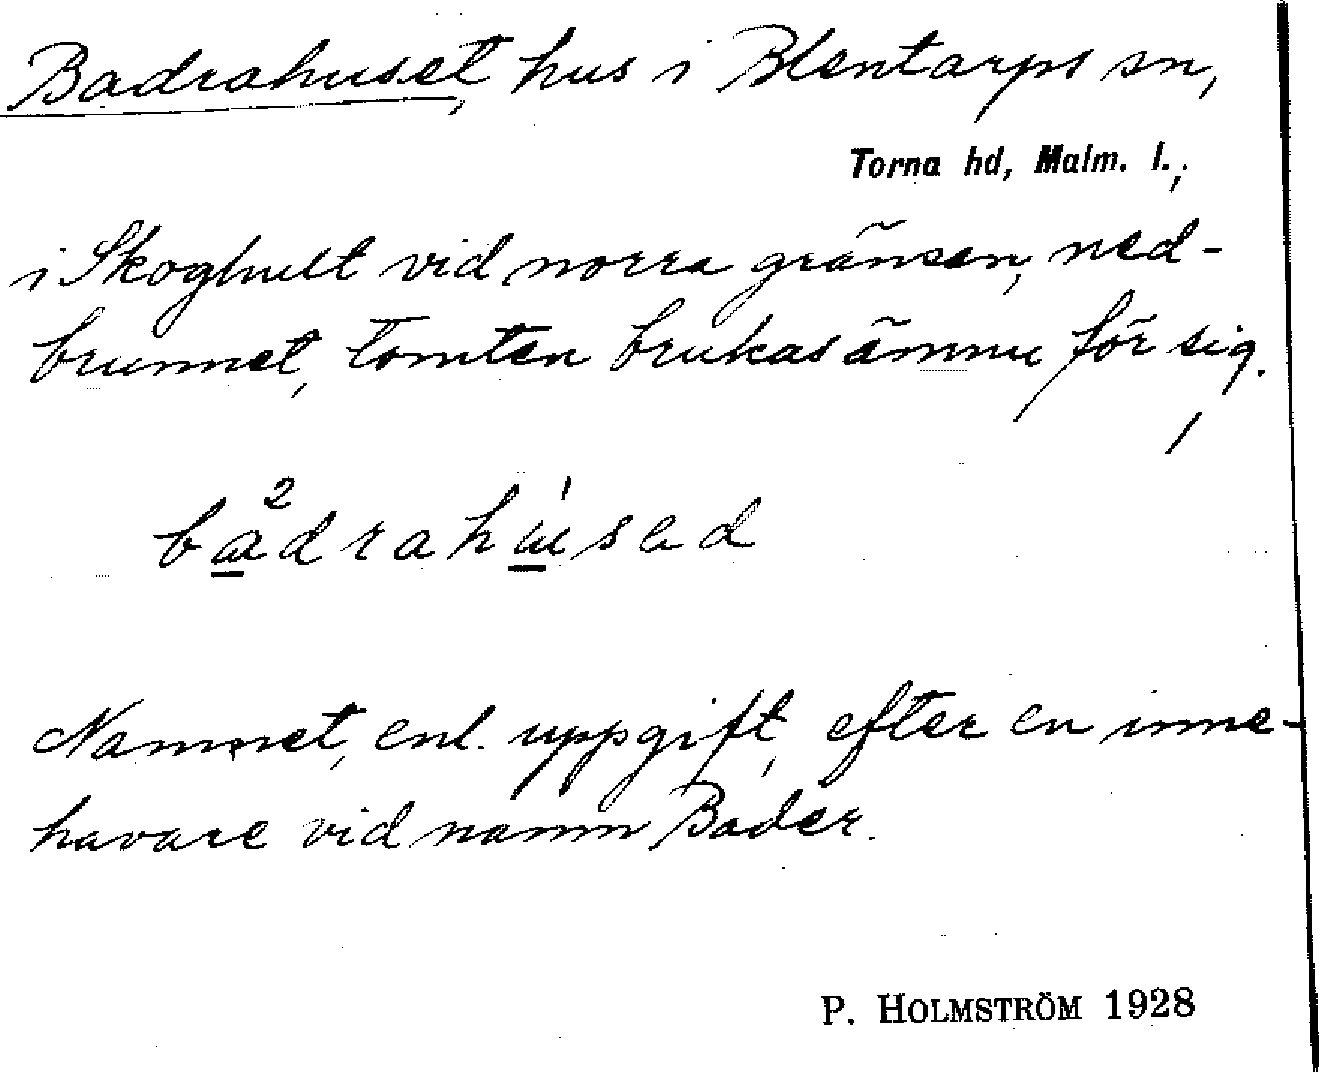 Badrahuset, hus i Blentarps sn,
Torna hd, Malm. l.,
i Skoghult vid norra gränsen, ned-
brunnet, tomten brukas ännu för sig.
Namnet, enl. uppgift, efter en inne-
havare vid namn Bader.
P. HOLMSTRÖM 1928